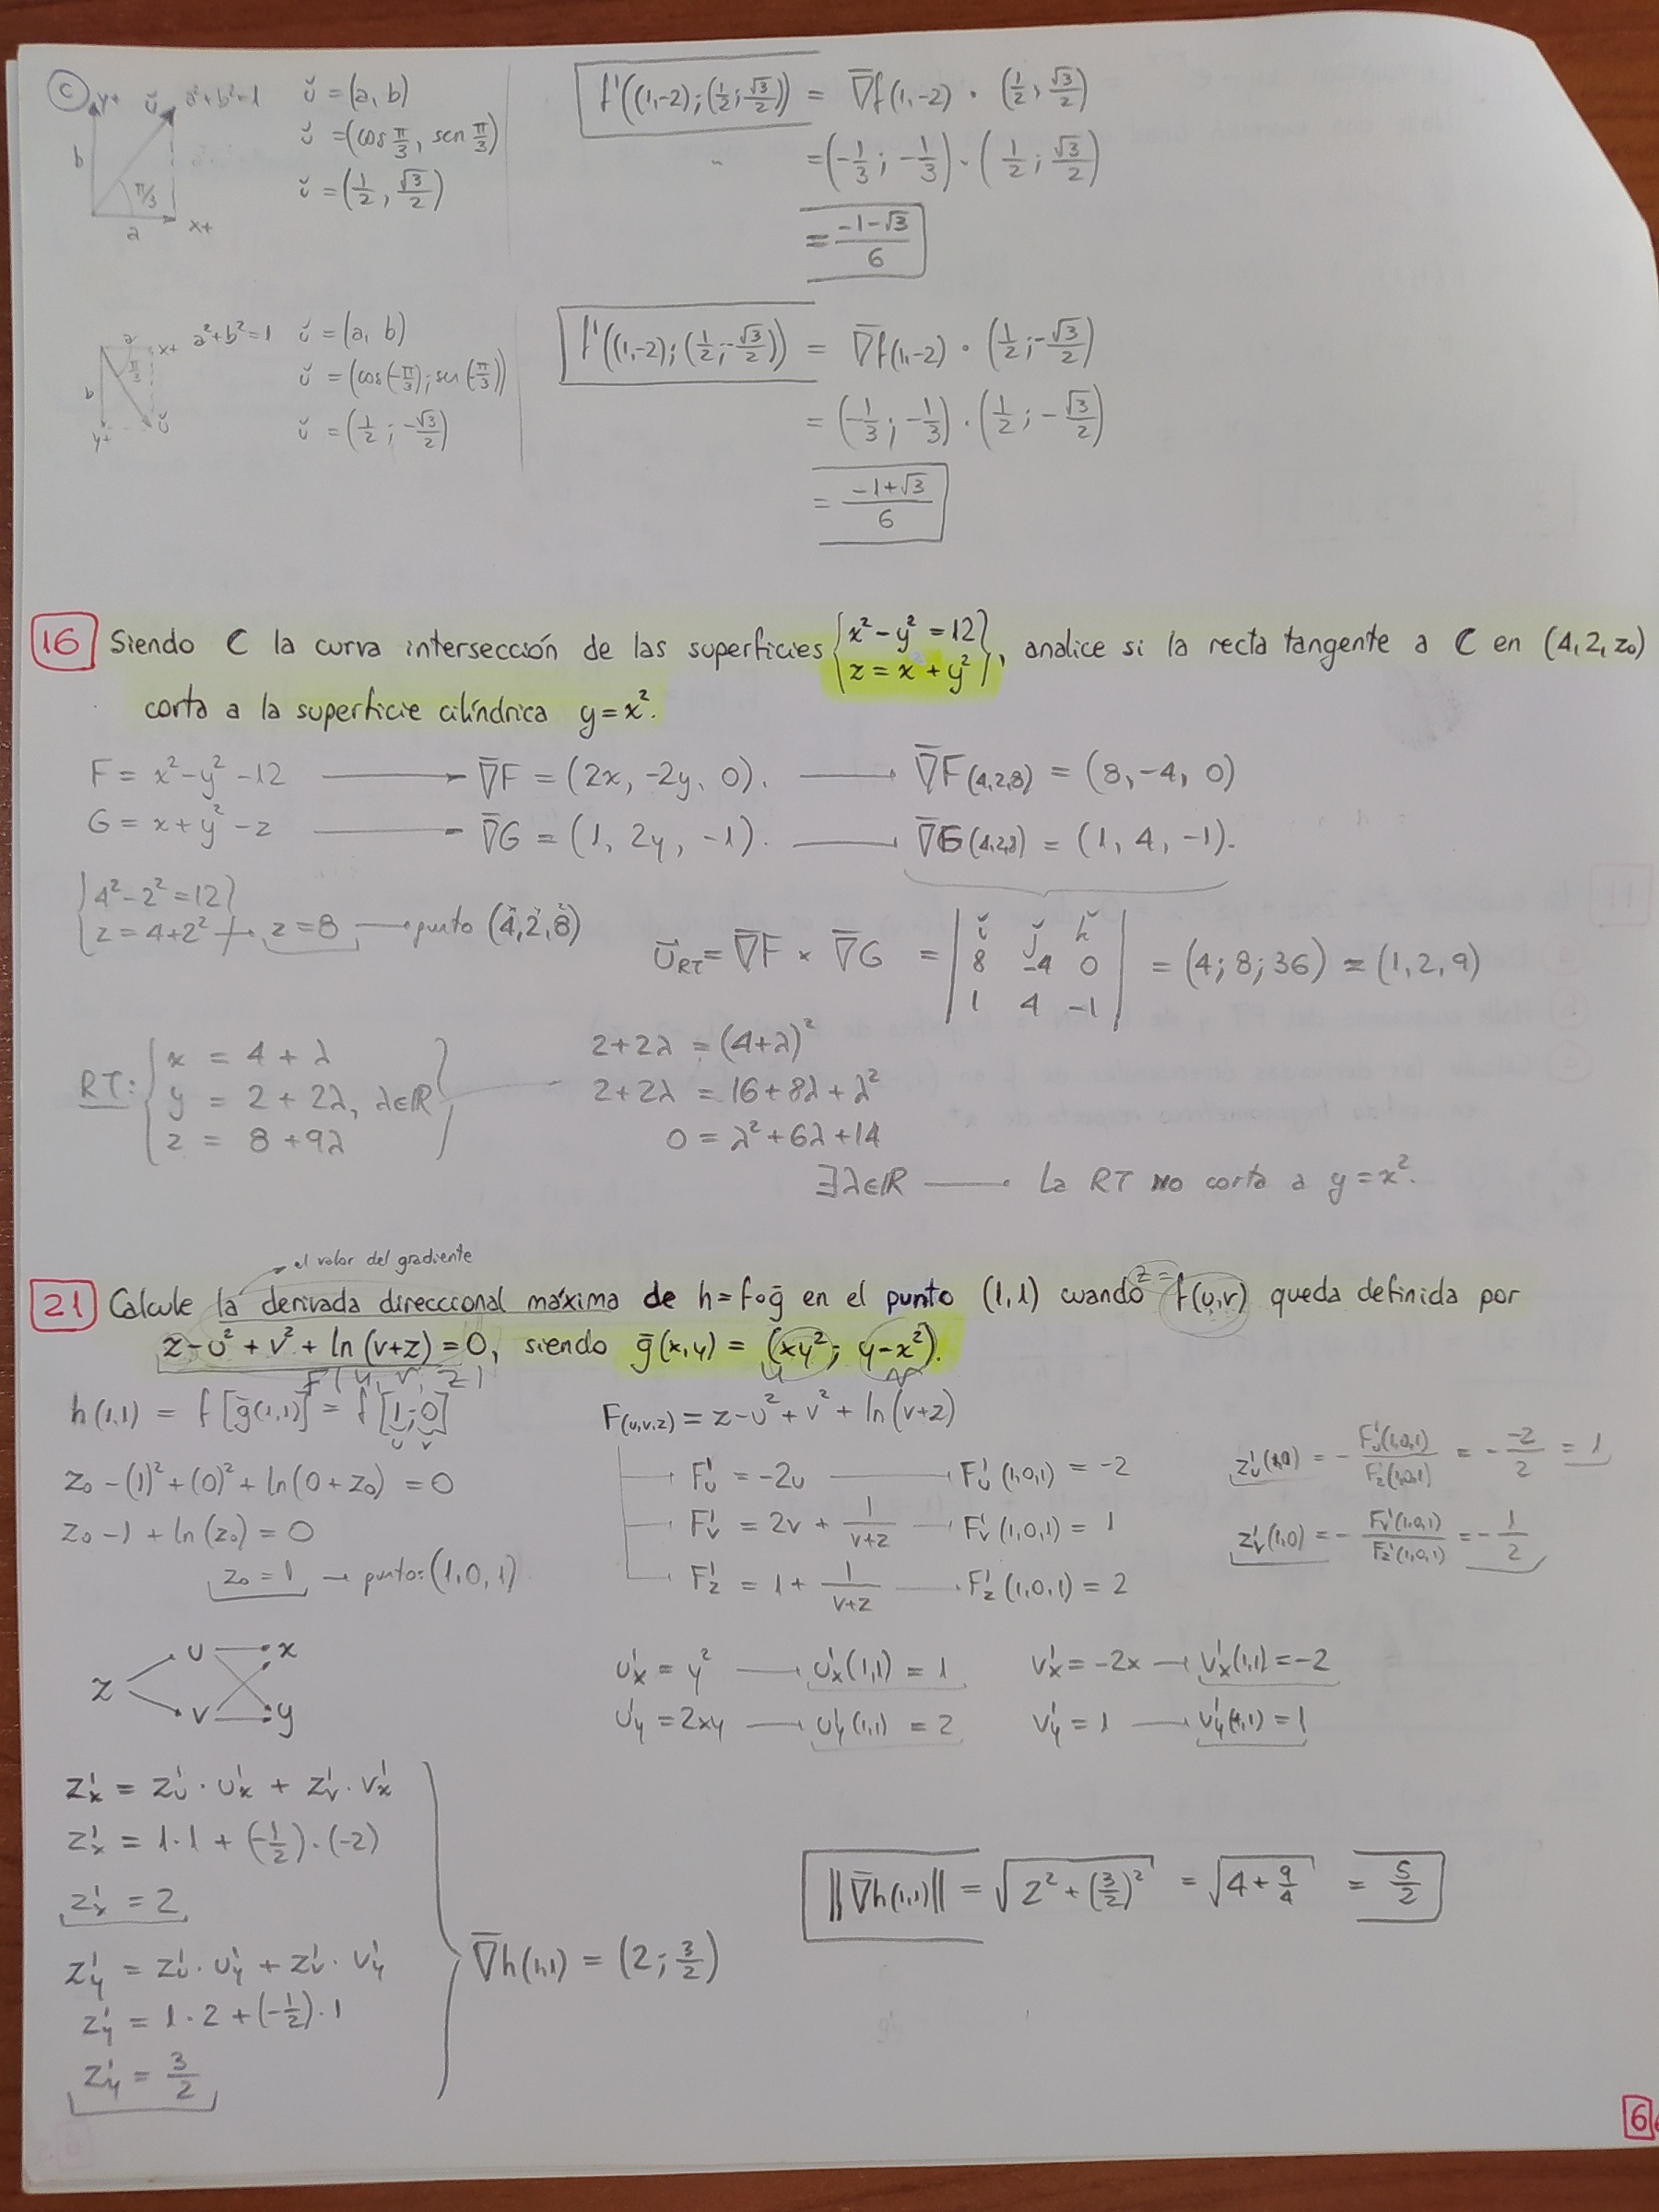 c y+ ǔ a²+b²=1 ǔ = (a, b)
b ǔ = (cos π/3, sen π/3)
π/3 ǔ = (1/2, √3/2)
a x+
f'((1,-2);(1/2;√3/2)) = ∇̄f(1,-2) · (1/2; √3/2)
= (-1/3; -1/3) · (1/2; √3/2)
= (-1-√3)/6
a x+ a²+b²=1 ǔ = (a, b)
b π/3 ǔ = (cos(-π/3); sen(-π/3))
y+ ǔ ǔ = (1/2; -√3/2)
f'((1,-2);(1/2;-√3/2)) = ∇̄f(1,-2) · (1/2;-√3/2)
= (-1/3; -1/3) · (1/2; -√3/2)
= (-1+√3)/6
16 Siendo C la curva intersección de las superficies {x²-y²=12 z=x+y²}, analice si la recta tangente a C en (4,2,z₀)
corta a la superficie cilíndrica y=x².
F = x²-y²-12 → ∇̄F = (2x, -2y, 0). → ∇̄F(4,2,8) = (8,-4, 0)
G = x+y²-z → ∇̄G = (1, 2y, -1). → ∇̄G(4,2,8) = (1, 4, -1).
{4²-2²=12
z=4+2² → z=8 → punto (4,2,8)
Ū_RT = ∇̄F × ∇̄G = |ǐ ǰ ǩ
8 -4 0
1 4 -1| = (4; 8; 36) ≈ (1,2,9)
RT: {x = 4 + λ
y = 2 + 2λ, λ∈ℝ
z = 8 + 9λ}
2+2λ = (4+λ)²
2+2λ = 16+8λ+λ²
0 = λ²+6λ+14
∄λ∈ℝ → La RT no corta a y=x².
el valor del gradiente
21 Calcule la derivada direccional máxima de h=f∘ḡ en el punto (1,1) cuando z=f(u,v) queda definida por
z-u²+v²+ln(v+z)=0, siendo ḡ(x,y) = (xy²; y-x²).
F(u,v,z) u v
h(1,1) = f[ḡ(1,1)] = f[1;0]
u v
z₀-(1)²+(0)²+ln(0+z₀) = 0
z₀-1+ln(z₀) = 0
z₀=1 → punto:(1,0,1)
F(u,v,z) = z-u²+v²+ln(v+z)
F'u = -2u → F'u(1,0,1) = -2
F'v = 2v + 1/(v+z) → F'v(1,0,1) = 1
F'z = 1 + 1/(v+z) → F'z(1,0,1) = 2
z'u(1,0) = - F'u(1,0,1)/F'z(1,0,1) = - -2/2 = 1
z'v(1,0) = - F'v(1,0,1)/F'z(1,0,1) = - 1/2
z u x
v y
u'x = y² → u'x(1,1) = 1 v'x = -2x → v'x(1,1) = -2
u'y = 2xy → u'y(1,1) = 2 v'y = 1 → v'y(1,1) = 1
z'x = z'u · u'x + z'v · v'x
z'x = 1·1 + (-1/2)·(-2)
z'x = 2
z'y = z'u · u'y + z'v · v'y
z'y = 1·2 + (-1/2)·1
z'y = 3/2
∇̄h(1,1) = (2; 3/2)
||∇̄h(1,1)|| = √(2²+(3/2)²) = √(4+9/4) = 5/2
6